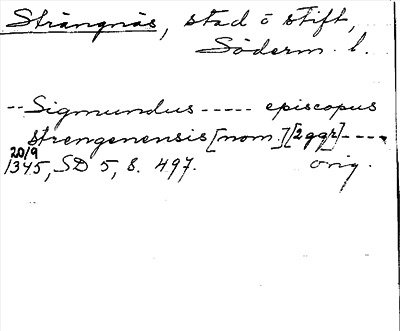 Strängnäs, stad o stift,
Söderm. l.
-- Sigmundus ----- episcopus
strengenensis [nom.] [2 ggr] ----
20/9
1345, SD 5, s. 497. orig.